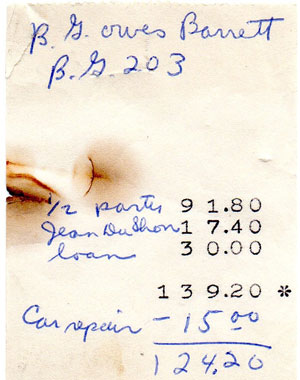 B. G. owes Barrett
B. G. 203
1/2 partes 91.80
Jean DuShon 17.40
loan 30.00
139.20 *
Car repair - 15.00
124.20